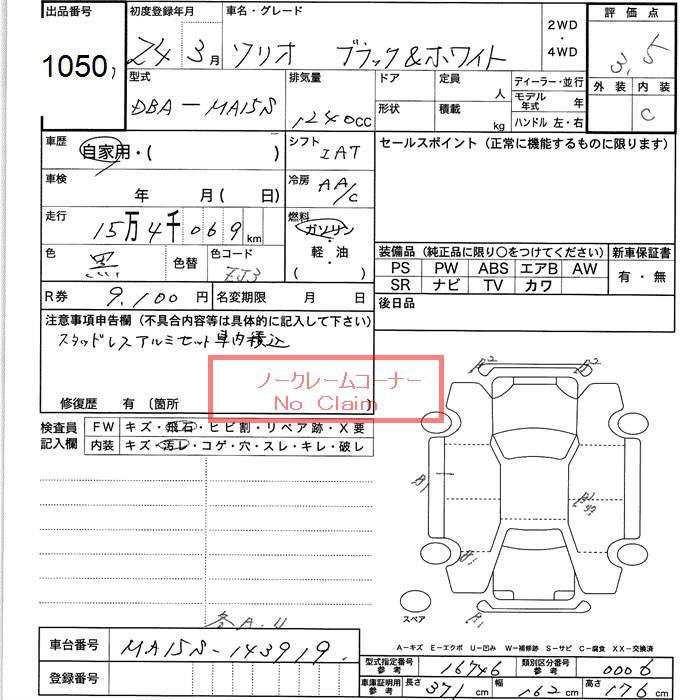 出品番号 初度登録年月 車名・グレード 2WD・4WD 評価点
1050 24 3月 ソリオ ブラック&ホワイト 3.5
型式 排気量 ドア 定員 人 ディーラー・並行 外装 内装
DBA-MA15S 1240cc 形状 積載 kg モデル年式 年 C
ハンドル 左・右
車歴 自家用・( ) シフト IAT セールスポイント(正常に機能するものに限ります)
車検 年 月( 日) 冷房 AA/C
走行 15万4千069km 燃料 ガソリン・軽・油( )
色 黒 色替 色コード ZJ3
装備品(純正品に限り○をつけてください) 新車保証書
PS PW ABS エアB AW 有・無
SR ナビ TV カワ
R券 9,100円 名変期限 月 日 後日品
注意事項申告欄(不具合内容等は具体的に記入して下さい)
スタッドレスアルミセット車内積込
ノークレームコーナー
No Claim
修復歴 有〔箇所 〕
検査員記入欄 FW キズ・飛石・ヒビ割・リペア跡・X要
内装 キズ・汚レ・コゲ・穴・スレ・キレ・破レ
A2
A1
スペア
各A.U
A1
A-キズ E-エクボ U-凹み W-補修跡 S-サビ C-腐食 XX-交換済
車台番号 MA15S-143919
登録番号
型式指定番号参考 16746 類別区分番号参考 0006
車庫証明用参考 長さ 371cm 幅 162cm 高さ 176cm